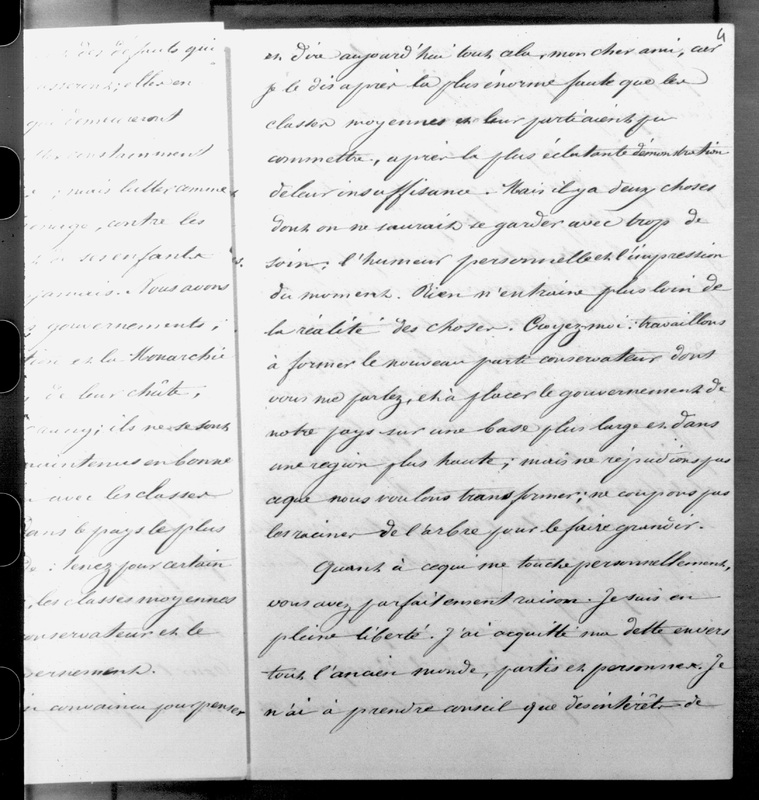 des défauts qui
en
qui demeureront
constamment
; mais lutter comme
contre les
ses enfants
jamais. Nous avons
gouvernements ;
et la Monarchie
de leur chûte ;
; ils ne se sont
maintenus en bonne
avec les classes
dans le pays le plus
: tenez pour certain
les classes moyennes
conservateur et le
gouvernement.
convaincu pour penser
4
et dire aujourd'hui tout cela, mon cher ami, car
je le dis après la plus énorme faute que les
classes moyennes et leur parti aient pu
commettre, après la plus éclatante démonstration
de leur insuffisance. Mais il y a deux choses
dont on ne saurait se garder avec trop de
soin, l'humeur personnelle et l'impression
du moment. Rien n'entraine plus loin de
la réalité des choses. Croyez-moi : travaillons
à former le nouveau parti conservateur dont
vous me parlez, et à placer le gouvernement de
notre pays sur une base plus large et dans
une région plus haute ; mais ne répudions pas
ce que nous voulons transformer ; ne coupons pas
les racines de l'arbre pour le faire grandir.
Quant à ce qui me touche personnellement,
vous avez parfaitement raison. Je suis en
pleine liberté. J'ai acquitté ma dette envers
tout l'ancien monde, partis et personnes. Je
n'ai à prendre conseil que des intérêts de